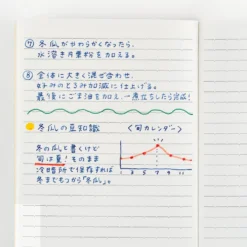 ⑦ 冬瓜がやわらかくなったら、
水溶き片栗粉を加える。
⑧ 全体に大きく混ぜ合わせ、
好みのとろみ加減に仕上げる。
最後にごま油を加え、一煮立ちしたら完成!
冬瓜の豆知識
〈旬カレンダー〉
冬の瓜と書くけど
旬は夏! そのまま
冷暗所で保存すれば
冬までもつから「冬瓜」。
1 3 5 7 9 11